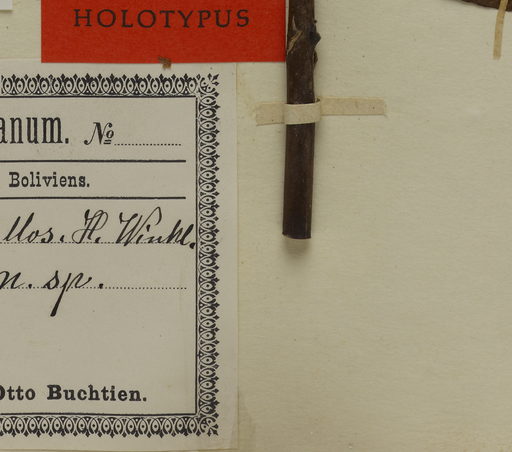 HOLOTYPUS
anum. №
Boliviens.
llos. H. Winkl.
n. sp.
Otto Buchtien.